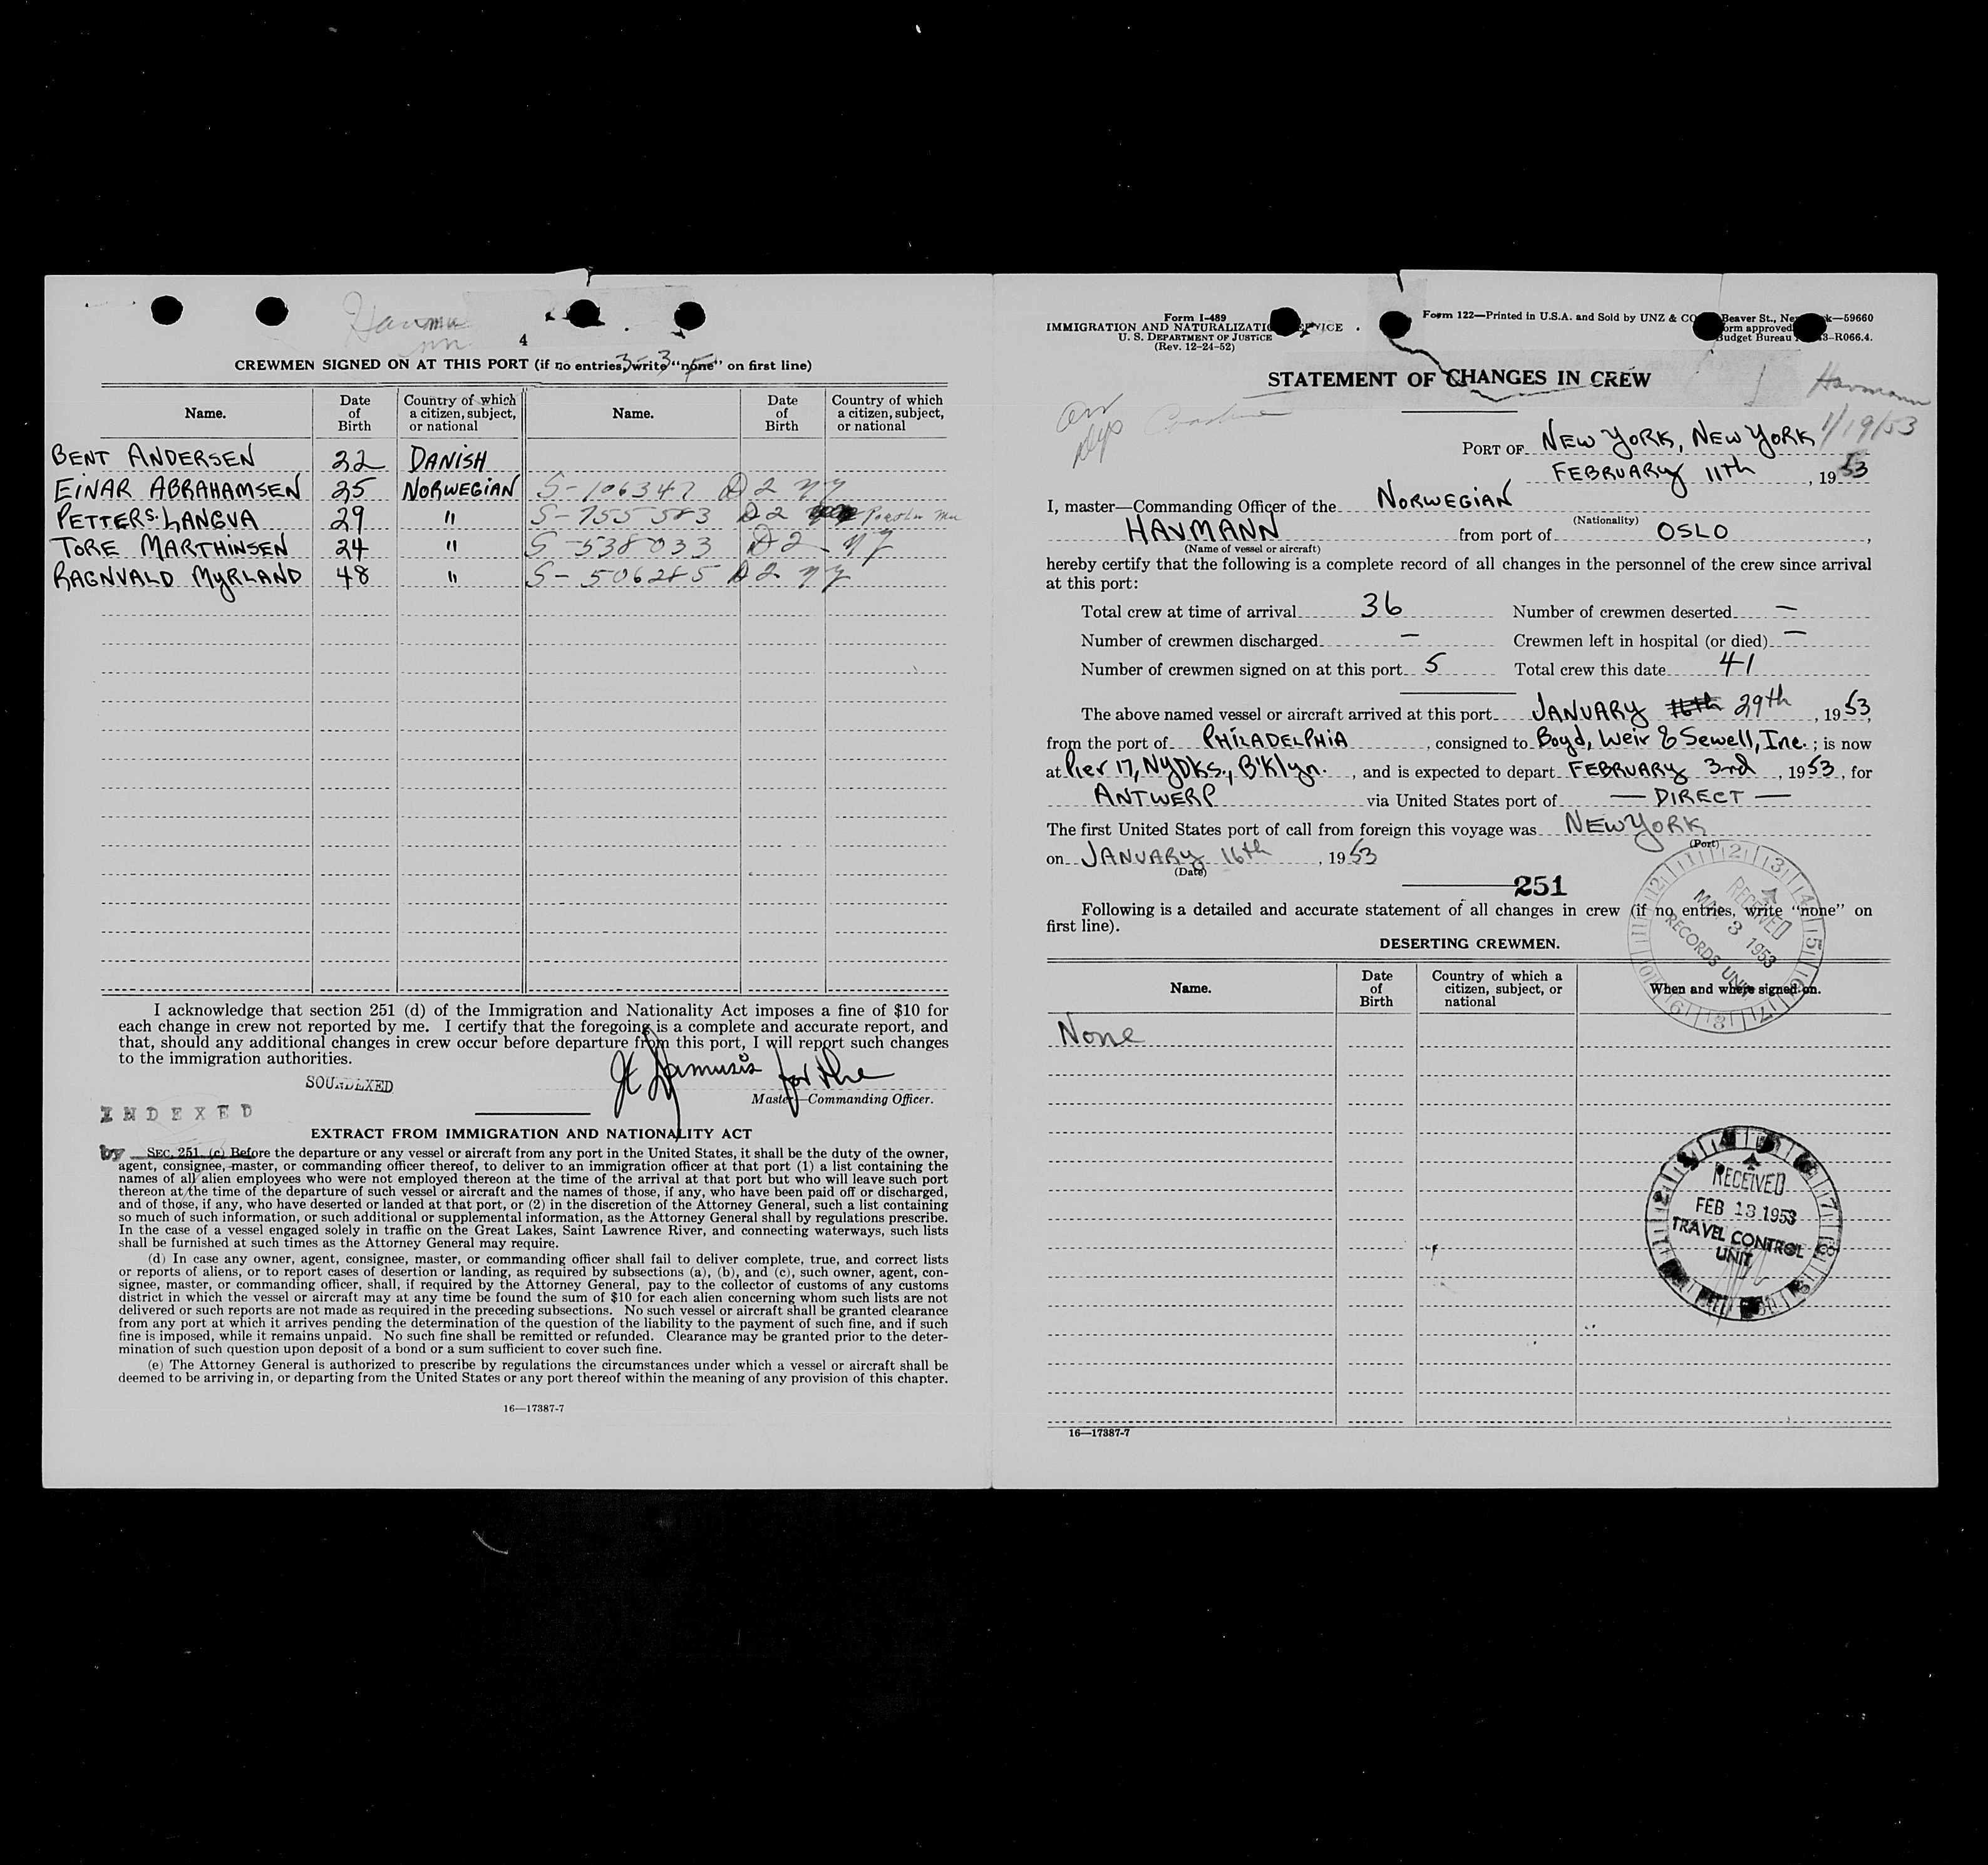 Havmann
4
3-3-5
CREWMEN SIGNED ON AT THIS PORT (if no entries, write "none" on first line)
Name. Date of Birth Country of which a citizen, subject, or national Name. Date of Birth Country of which a citizen, subject, or national
BENT ANDERSEN 22 DANISH
EINAR ABRAHAMSEN 25 NORWEGIAN S-106347 D2 NY
PETTER S. LANGVA 29 " S-755583 D2
TORE MARTHINSEN 24 " S-538033 D2 - NY
RAGNVALD MYRLAND 48 " S-506285 D2 NY
I acknowledge that section 251 (d) of the Immigration and Nationality Act imposes a fine of $10 for
each change in crew not reported by me. I certify that the foregoing is a complete and accurate report, and
that, should any additional changes in crew occur before departure from this port, I will report such changes
to the immigration authorities.
for the
SOUNDEXED
Master—Commanding Officer.
INDEXED
EXTRACT FROM IMMIGRATION AND NATIONALITY ACT
by SEC. 251. (c) Before the departure or any vessel or aircraft from any port in the United States, it shall be the duty of the owner,
agent, consignee, master, or commanding officer thereof, to deliver to an immigration officer at that port (1) a list containing the
names of all alien employees who were not employed thereon at the time of the arrival at that port but who will leave such port
thereon at the time of the departure of such vessel or aircraft and the names of those, if any, who have been paid off or discharged,
and of those, if any, who have deserted or landed at that port, or (2) in the discretion of the Attorney General, such a list containing
so much of such information, or such additional or supplemental information, as the Attorney General shall by regulations prescribe.
In the case of a vessel engaged solely in traffic on the Great Lakes, Saint Lawrence River, and connecting waterways, such lists
shall be furnished at such times as the Attorney General may require.
(d) In case any owner, agent, consignee, master, or commanding officer shall fail to deliver complete, true, and correct lists
or reports of aliens, or to report cases of desertion or landing, as required by subsections (a), (b), and (c), such owner, agent, con-
signee, master, or commanding officer, shall, if required by the Attorney General, pay to the collector of customs of any customs
district in which the vessel or aircraft may at any time be found the sum of $10 for each alien concerning whom such lists are not
delivered or such reports are not made as required in the preceding subsections. No such vessel or aircraft shall be granted clearance
from any port at which it arrives pending the determination of the question of the liability to the payment of such fine, and if such
fine is imposed, while it remains unpaid. No such fine shall be remitted or refunded. Clearance may be granted prior to the deter-
mination of such question upon deposit of a bond or a sum sufficient to cover such fine.
(e) The Attorney General is authorized to prescribe by regulations the circumstances under which a vessel or aircraft shall be
deemed to be arriving in, or departing from the United States or any port thereof within the meaning of any provision of this chapter.
16—17387-7
Form I-489
IMMIGRATION AND NATURALIZATION SERVICE
U. S. DEPARTMENT OF JUSTICE
(Rev. 12-24-52)
Form 122—Printed in U.S.A. and Sold by UNZ & CO Beaver St., New York—59660
Form approved
Budget Bureau 43-R066.4.
STATEMENT OF CHANGES IN CREW
Havmann
1/19/53
PORT OF NEW YORK, NEW YORK
FEBRUARY 11th, 1953
I, master—Commanding Officer of the NORWEGIAN
(Nationality)
HAVMANN from port of OSLO,
(Name of vessel or aircraft)
hereby certify that the following is a complete record of all changes in the personnel of the crew since arrival
at this port:
Total crew at time of arrival 36 Number of crewmen deserted —
Number of crewmen discharged — Crewmen left in hospital (or died) —
Number of crewmen signed on at this port 5 Total crew this date 41
The above named vessel or aircraft arrived at this port JANUARY 16th 29th, 1953,
from the port of PHILADELPHIA, consigned to Boyd, Weir & Sewell, Inc.; is now
at Pier 17, NYDKs., B'Klyn., and is expected to depart FEBRUARY 3rd, 1953, for
ANTWERP via United States port of — DIRECT —
The first United States port of call from foreign this voyage was NEW YORK
(Port)
on JANUARY 16th, 1953
(Date)
251
Following is a detailed and accurate statement of all changes in crew (if no entries, write "none" on
first line).
RECEIVED
MAR 3 1953
RECORDS UNIT
DESERTING CREWMEN.
Name. Date of Birth Country of which a citizen, subject, or national When and where signed on.
None
RECEIVED
FEB 13 1953
TRAVEL CONTROL
UNIT
16—17387-7